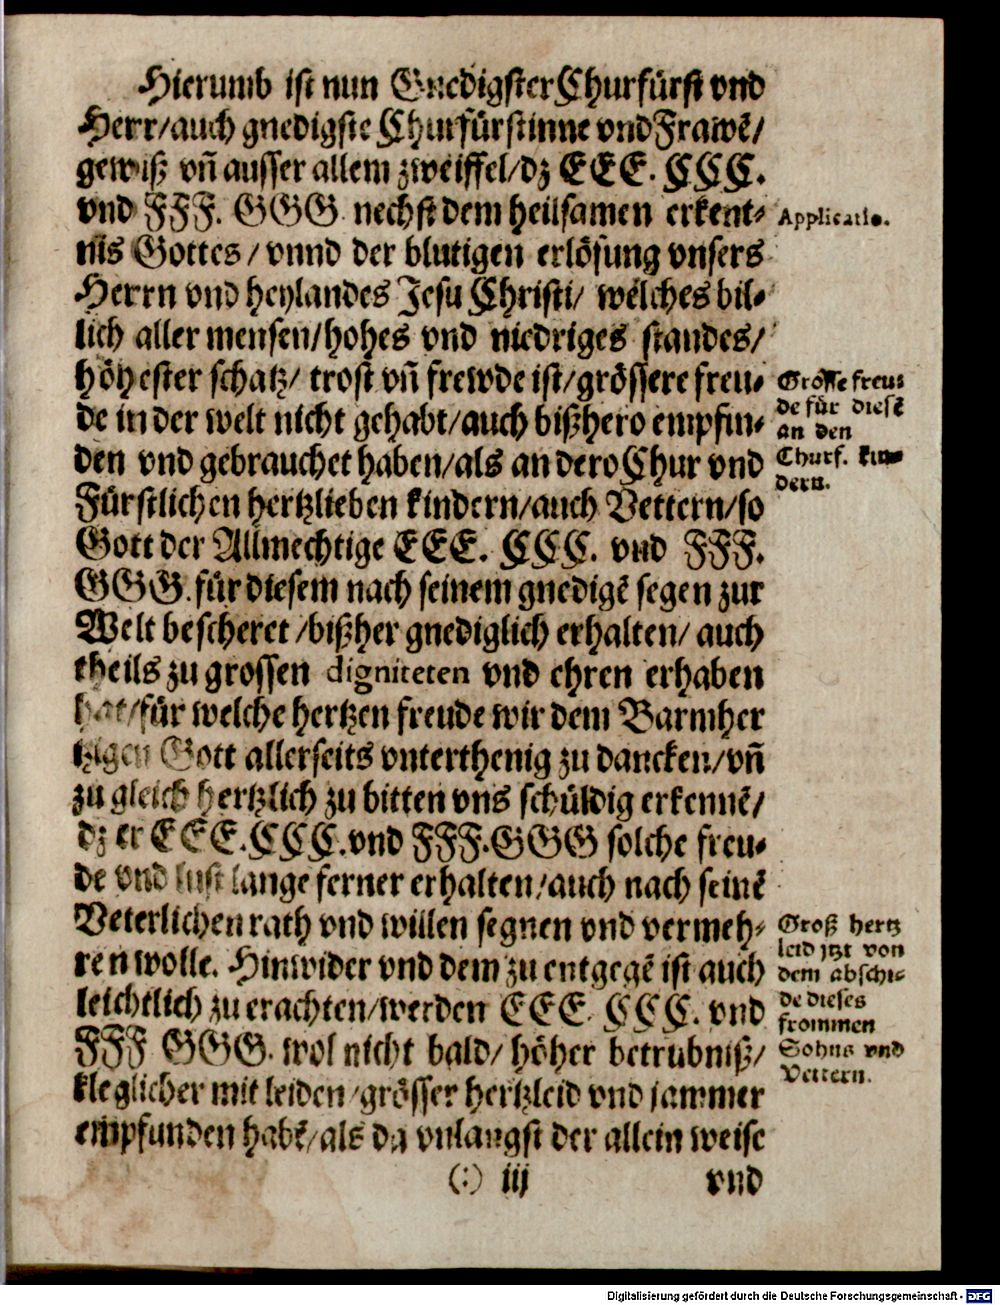 Hierumb ist nun Gnedigster Churfürst vnd
Herr/auch gnedigste Churfürstinne vnd Frawē/
gewiß vñ ausser allem zweiffel/dz EEE. CCC.
vnd FFF. GGG nechst dem heilsamen erkent⸗
nis Gottes/ vnnd der blutigen erlösung vnsers
Herrn vnd heylandes Jesu Christi/ welches bil⸗
lich aller mensen/hohes vnd niedriges standes/
höhester schatz/ trost vñ frewde ist/grössere freu⸗
de in der welt nicht gehabt/auch bißhero empfin⸗
den vnd gebrauchet haben/als an dero Chur vnd
Fürstlichen hertzlieben kindern/auch Vettern/so
Gott der Allmechtige EEE. CCC. vnd FFF.
GGG. für diesem nach seinem gnedigē segen zur
Welt bescheret/bißher gnediglich erhalten/ auch
theils zu grossen digniteten vnd ehren erhaben
hat/für welche hertzen freude wir dem Barmher
tzigen Gott allerseits vnterthenig zu dancken/vñ
zu gleich hertzlich zu bitten vns schüldig erkennē/
dz er EEE. CCC. vnd FFF. GGG solche freu⸗
de vnd lust lange ferner erhalten/auch nach seinē
Veterlichen rath vnd willen segnen vnd vermeh⸗
ren wolle. Hinwider vnd dem zu entgegē ist auch
leichtlich zu erachten/werden EEE. CCC. vnd
FFF GGG. wol nicht bald/ höher betrubniß/
kleglicher mit leiden/grösser hertzleid vnd jammer
empfunden habē/als da vnlangst der allein weise
(:) iij vnd
Applicatio.
Grosse freu⸗
de für diesē
an den
Churf. kin⸗
dern.
Groß hertz
leid jtzt von
dem abschi⸗
de dieses
frommen
Sohns vnd
Vettern.
Digitalisierung gefördert durch die Deutsche Forschungsgemeinschaft - DFG